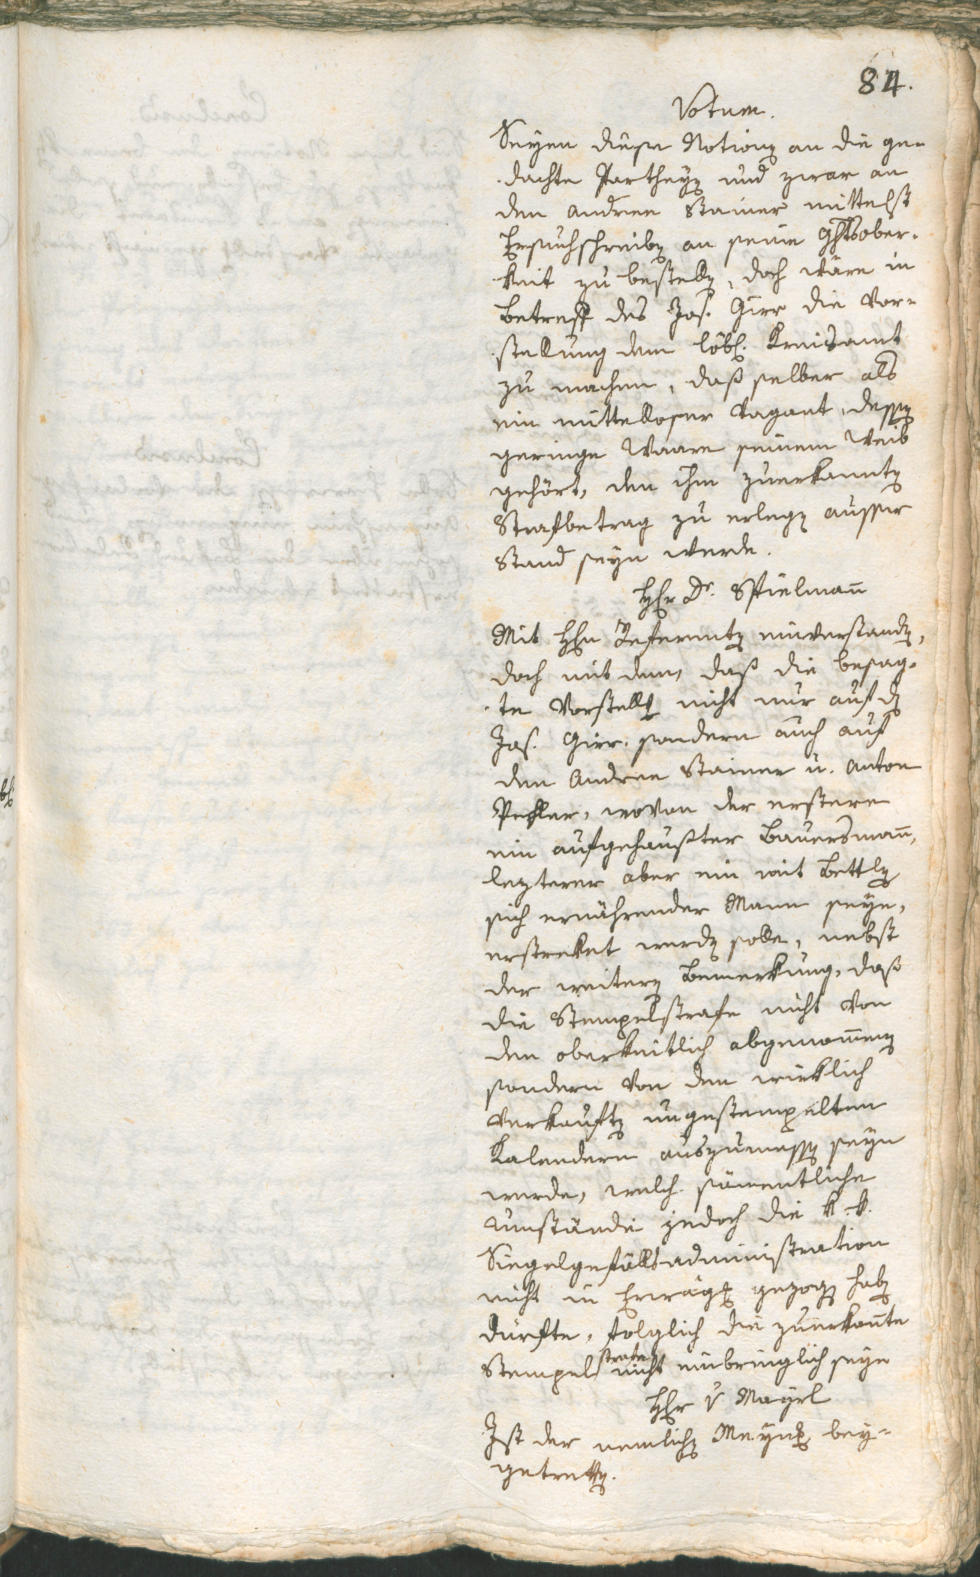 84.
Votum.
Seyen diese Notionen an die ge=
dachte Partheyen und zwar an
den Andree Stainer mittelst
Ersuchschreiben an seine Ghtsober=
keit zu bestellen, doch wäre in
Betreff des Jos. Girr die Vor=
stellung dem löbl. Kreisamt
zu machen, daß selber als
ein mittelloser Vagant, dessen
geringe Waare seinem Weib
gehört, den ihm zuerkannten
Strafbetrag zu erlegen ausser
Stand seyn werde.
Hr Dr. Spielmann
Mit Hrn Referenten einverstanden,
doch mit dem, daß die besag=
te Vorstellung nicht nur auf den
Jos. Girr, sondern auch auf
den Andree Stainer u. Anton
Pichler, wovon der erstere
ein aufgehauster Bauersmann,
lezterer aber ein mit Bettlen
sich ernährender Mann seye,
erstreket werden solle, nebst
der weitern Bemerkung, daß
die Stempelstrafe nicht von
den oberkeitlich abgenommenen
sondern von den wirklich
verkauften ungestempelten
Kalendern auszumessen seyn
werde, welch sämentliche
Umstände jedoch die k. k.
Siegelgefällsadministration
nicht in Erwägung gezogen haben
dürfte, folglich die zuerkannte
Stempelstrafe nicht einbringlich seye
Hr v Mayrl
Ist der nemlichen Meynung bey=
getretten.